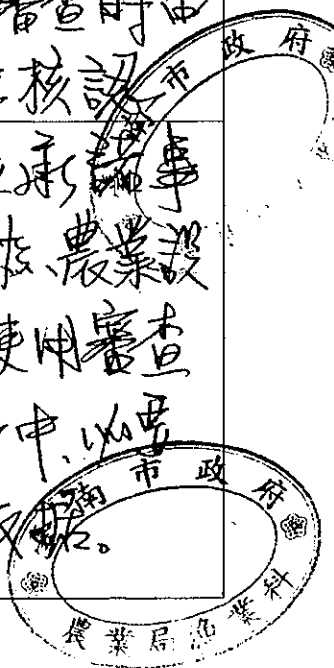 審查時由
核認
承諾事
核、農業設
使用審查
中,如要
市政府
南市政府
農業局漁業科